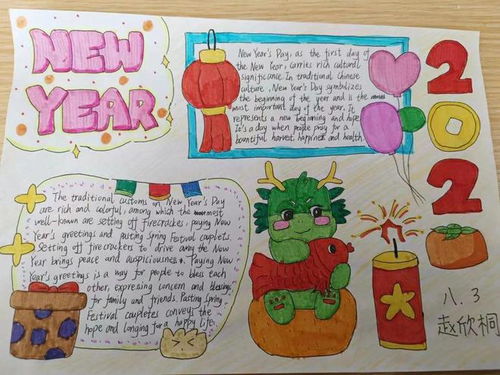 NEW
YEAR
New Year's Day, as the first day of
the New Year, carries rich cultural
significance. In traditional Chinese
culture, New Year's Day symbolizes
the beginning of the year and is the
most important day of the year. It
represents a new beginning and hope
It's a day when people pray for a
bountiful harvest, happiness and health.
2
0
2
The traditional customs of New Year's Day
are rich and colorful, among which the most
well-known are setting off firecrackers, paying New
Year's greetings and pasting Spring Festival couplets.
Setting off firecrackers to drive away the New
Year brings peace and auspiciousness. Paying New
Year's greetings is a way for people to bless each
other, expressing concern and blessings
for family and friends. Pasting Spring
Festival coupletes conveys the
hope and longing for a happy life.
八.3
赵欣桐